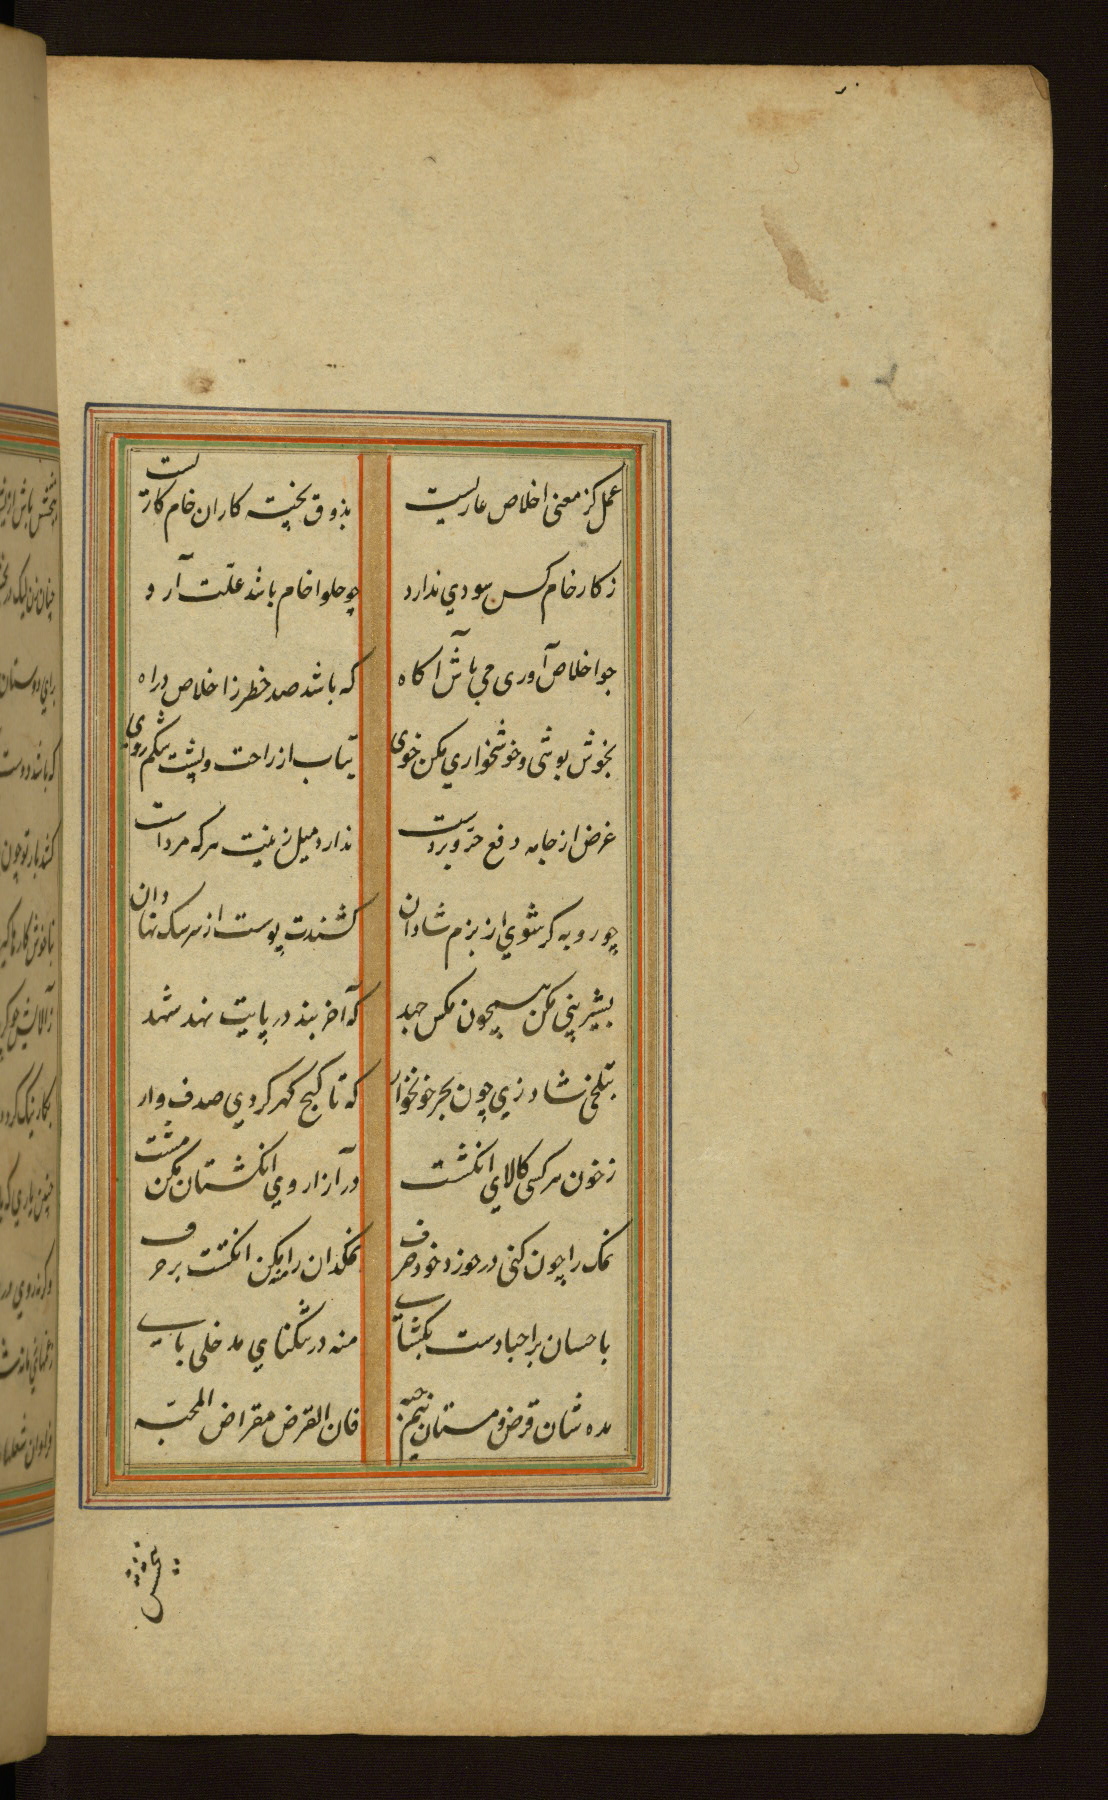 عمل کز معنی اخلاص عاریست بذوق پخته کاران خام کاریست
ز کار خام کس سودی ندارد چو حلوا خام باشد علّت آرد
چو اخلاص آوری می باش آکاه که باشد صد خطر ز اخلاص در راه
بخوش پوشی و خوشخواری مکن خوی بتاب از راحت و پشت شکم روی
غرض از جامه دفع حرّ و بردست ندارد میل زینت هرکه مردست
چو روبه کر شوی از بزم شادان کشندت پوست از سر سک نهادان
بشیرینی مکن همچون مکس جهد که آخر بند در پایت نهد شهد
بتلخی شاد زی چون بحر خونخوار که تا کنج کهر کردی صدف وار
ز خون هر کسی کالای انکشت در آزار وی انکشتان مکن مشت
نمک را چون کنی در خورد خود صرف نمکدان را مکن انکشت بر حرف
باحسان بر احبا دست بکشای منه در تنکنای مدخلی پای
مده شان قرض و مستان نیم حبّه فان القرض مقراض المحبّه